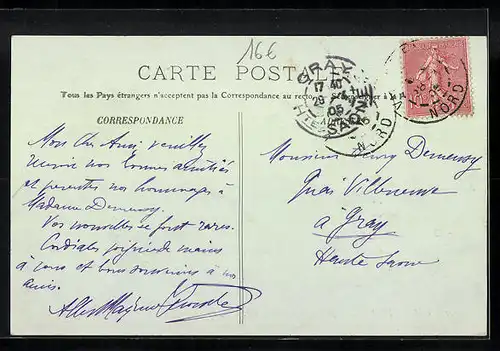 16€
CARTE POSTALE
Tous les Pays étrangers n'acceptent pas la Correspondance au recto
CORRESPONDANCE
GRAY
17 40
05
HTE SAONE
NORD
NORD
Mon cher Ami, veuillez
recevoir nos bonnes amitiés
et présenter nos hommages à
Madame Demessy.
Vos nouvelles se font rares.
Cordiales poignées de mains
à vous et bons souvenirs à nos
amis.
Monsieur Demessy
Quai Villeneuve
à Gray
Haute Saone